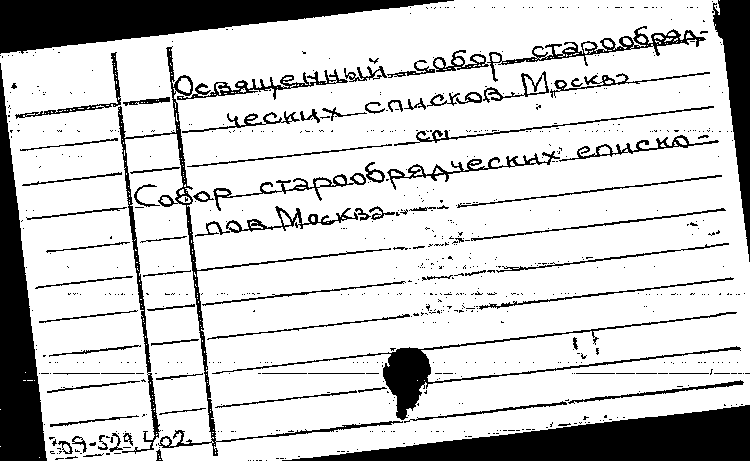 Освященный собор старообряд-
ческих списков. Москва
см
Собор старообрядческих еписко-
пов Москва
309-529,402.